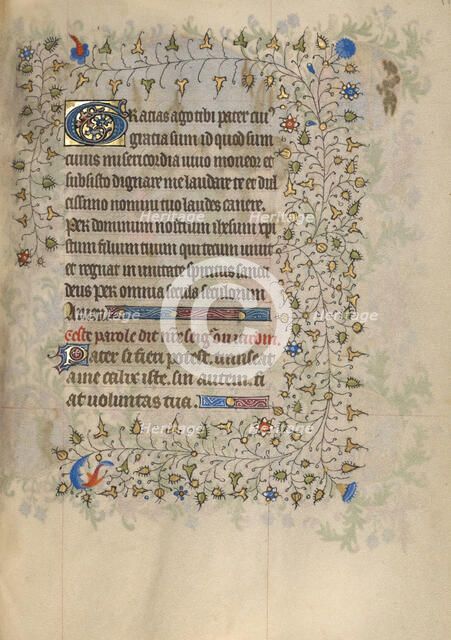 Gracias ago tibi pater cui'
gracia sum id quod sum
cuius misericordia uiuo moueor et
subsisto dignare me laudare te et dul
cissimo nomini tuo laudes canere.
Per dominum nostrum ihesum xpi
stum filium tuum qui tecum uiuit
et regnat in unitate spiritus sancti
deus per omnia secula seculorum
Amen
Ceste parole dit nre seigr on
Pater si fieri potest. transeat
a me calix iste. sin autem. fi
at voluntas tua.
Heritage Heritage
Images Images
Heritage Heritage
Images Images
Heritage Heritage
Images Images